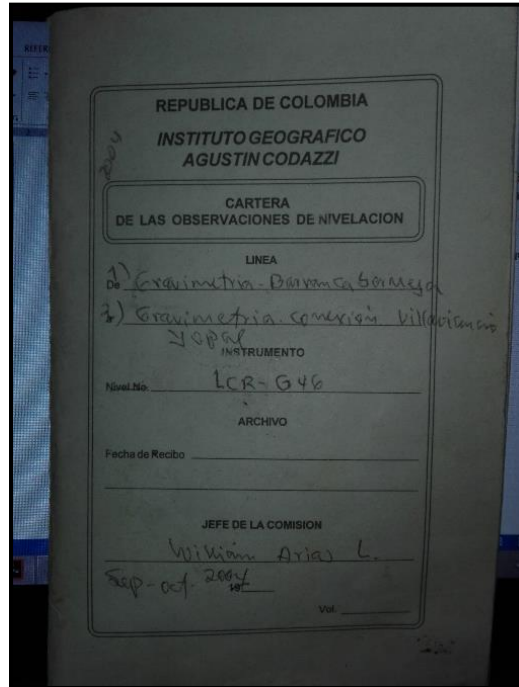 REPUBLICA DE COLOMBIA
INSTITUTO GEOGRAFICO
AGUSTIN CODAZZI
2004
CARTERA
DE LAS OBSERVACIONES DE NIVELACION
LINEA
1) Gravimetria - Barrancabermeja
De
2) Gravimetria. conexión Villavicencio
Yopal
INSTRUMENTO
Nivel No. LCR-G46
ARCHIVO
Fecha de Recibo
JEFE DE LA COMISION
William Arias L.
Sep-oct. 2004
Vol.